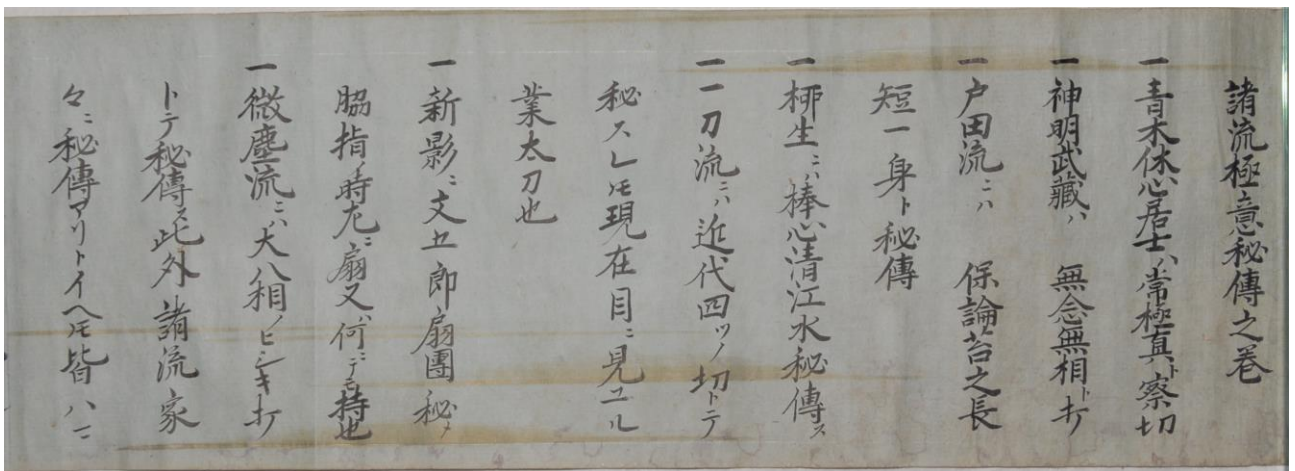 諸流極意秘傳之巻
一青木休心居士ハ常極真ト察切
一神明武藏ハ 無念無相ト打
一戸田流ニハ 保論苔之長
短一身ト秘傳
一栁生ニハ棒心清江水秘傳ス
一一刀流ニハ近代四ツノ切トテ
秘スレ𪜈現在目ニ見ユル
業太刀也
一新影ニ文五郎扇團秘メ
脇指ノ時尤ニ扇又ハ何ニテモ持也
一微塵流ニハ大八相ノヒシキ打
トテ秘傳ス此外諸流家
々ニ秘傳アリトイヘ𪜈皆八ニ